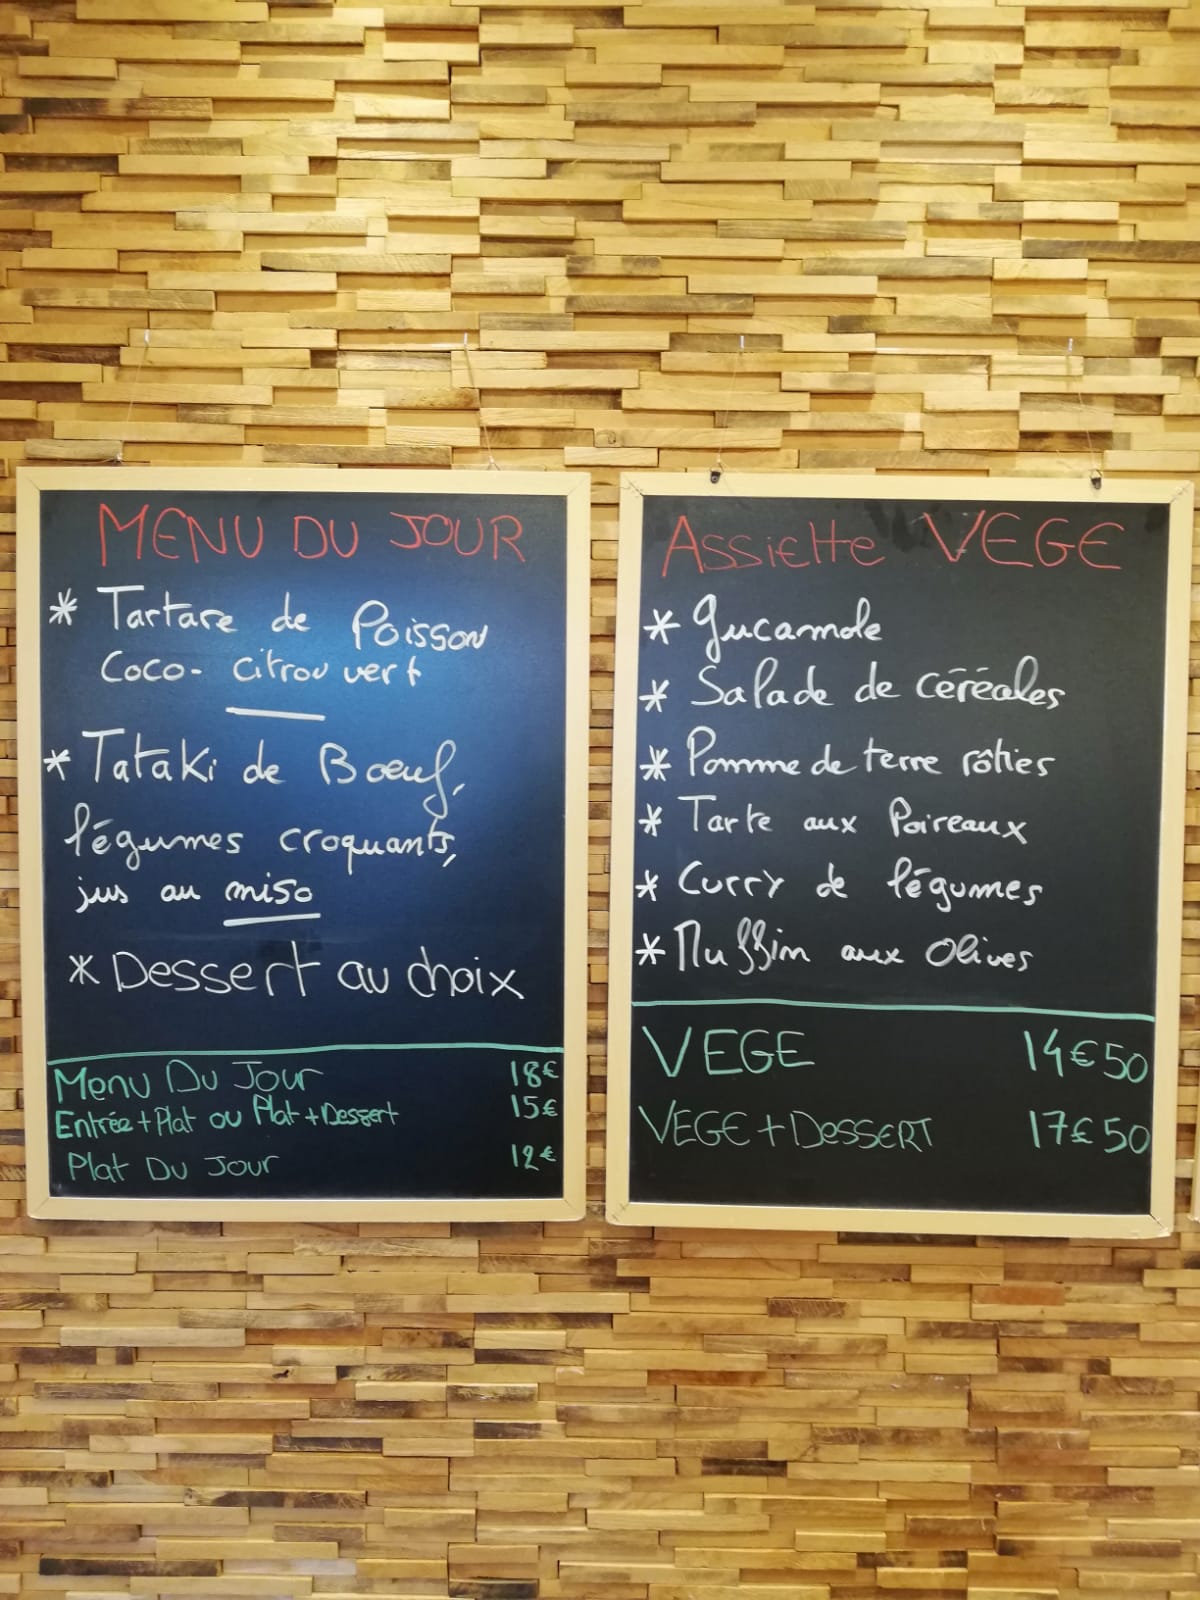 MENU DU JOUR
* Tartare de Poisson
Coco- citron vert
* Tataki de Boeuf,
légumes croquants,
jus au miso
* Dessert au choix
Menu Du Jour 18€
Entrée+Plat ou Plat+Dessert 15€
Plat Du Jour 12€
Assiette VEGE
* Gucamole
* Salade de céréales
* Pomme de terre rôties
* Tarte aux Poireaux
* Curry de légumes
* Muffin aux Olives
VEGE 14€50
VEGE+DESSERT 17€50